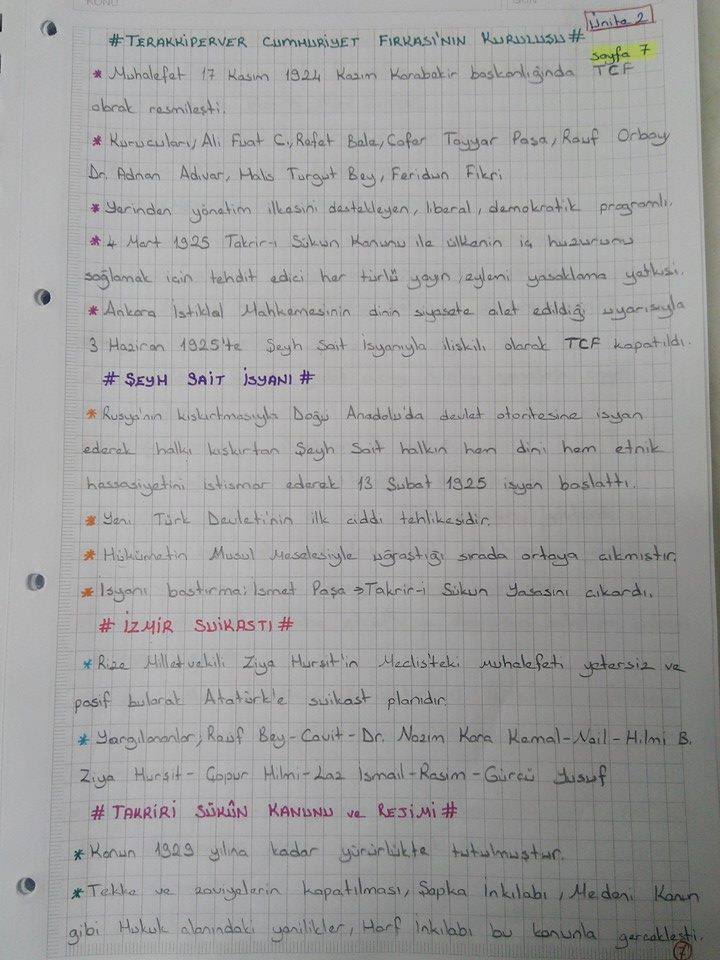 Ünite 2
#TERAKKİPERVER CUMHURİYET FIRKASI'NIN KURULUSU#
Sayfa 7
* Muhalefet 17 Kasım 1924 Kazım Karabekir başkanlığında TCF
olarak resmileşti.
* Kurucuları, Ali Fuat C., Refet Bele, Cafer Tayyar Paşa, Rauf Orbay
Dr. Adnan Adıvar, Halis Turgut Bey, Feridun Fikri
* Yerinden yönetim ilkesini destekleyen, liberal, demokratik programlı.
* 4 Mart 1925 Takrir-i Sükun Kanunu ile ülkenin iç huzurunu
sağlamak için tehdit edici her türlü yayın, eylemi yasaklama yetkisi.
* Ankara İstiklal Mahkemesinin dinin siyasete alet edildiği uyarısıyla
3 Haziran 1925'te Şeyh Sait isyanıyla ilişkili olarak TCF kapatıldı.
# ŞEYH SAİT İSYANI #
* Rusya'nın kışkırtmasıyla Doğu Anadolu'da devlet otoritesine isyan
ederek halkı kışkırtan Şeyh Sait halkın hem dini hem etnik
hassasiyetini istismar ederek 13 Şubat 1925 isyan başlattı.
* Yeni Türk Devleti'nin ilk ciddi tehlikesidir.
* Hükümetin Musul Meselesiyle uğraştığı sırada ortaya çıkmıştır.
* İsyanı bastırma; İsmet Paşa ⇒ Takrir-i Sükun Yasasını çıkardı.
# İZMİR SUİKASTI #
* Rize Milletvekili Ziya Hurşit'in Meclis'teki muhalefeti yetersiz ve
pasif bularak Atatürk'e suikast planıdır.
* Yargılananlar, Rauf Bey - Cavit - Dr. Nazım Kara Kemal - Nail - Hilmi B.
Ziya Hurşit - Çopur Hilmi - Laz İsmail - Rasım - Gürcü Yusuf
# TAKRİRİ SÜKÛN KANUNU ve REJİMİ #
* Kanun 1929 yılına kadar yürürlükte tutulmuştur.
* Tekke ve zaviyelerin kapatılması, Şapka İnkılabı, Medeni Kanun
gibi Hukuk alanındaki yenilikler, Harf İnkılabı bu kanunla gerçekleşti.
7